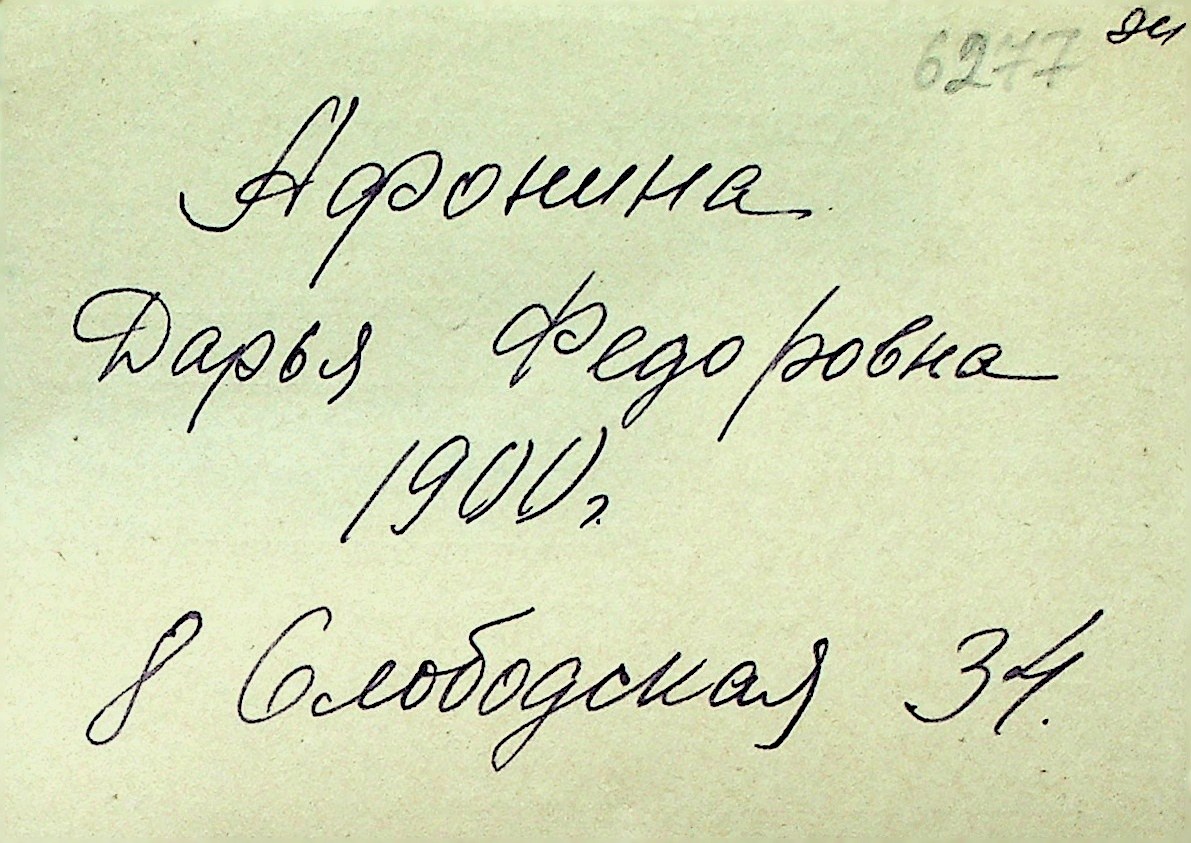 6277
Афонина
Дарья Федоровна
1900г
8 Слободская 34.